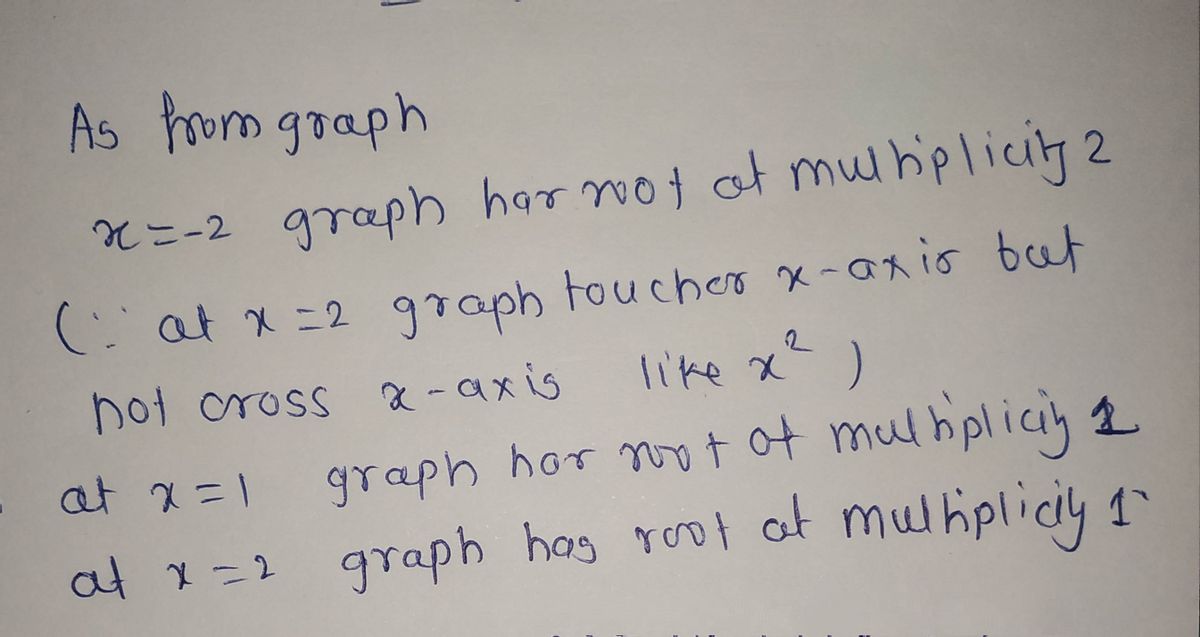 As from graph
x=-2 graph has root at multiplicity 2
(∵ at x=2 graph touches x-axis but
not cross x-axis like x²)
at x=1 graph has root of multiplicity 1
at x=2 graph has root at multiplicity 1